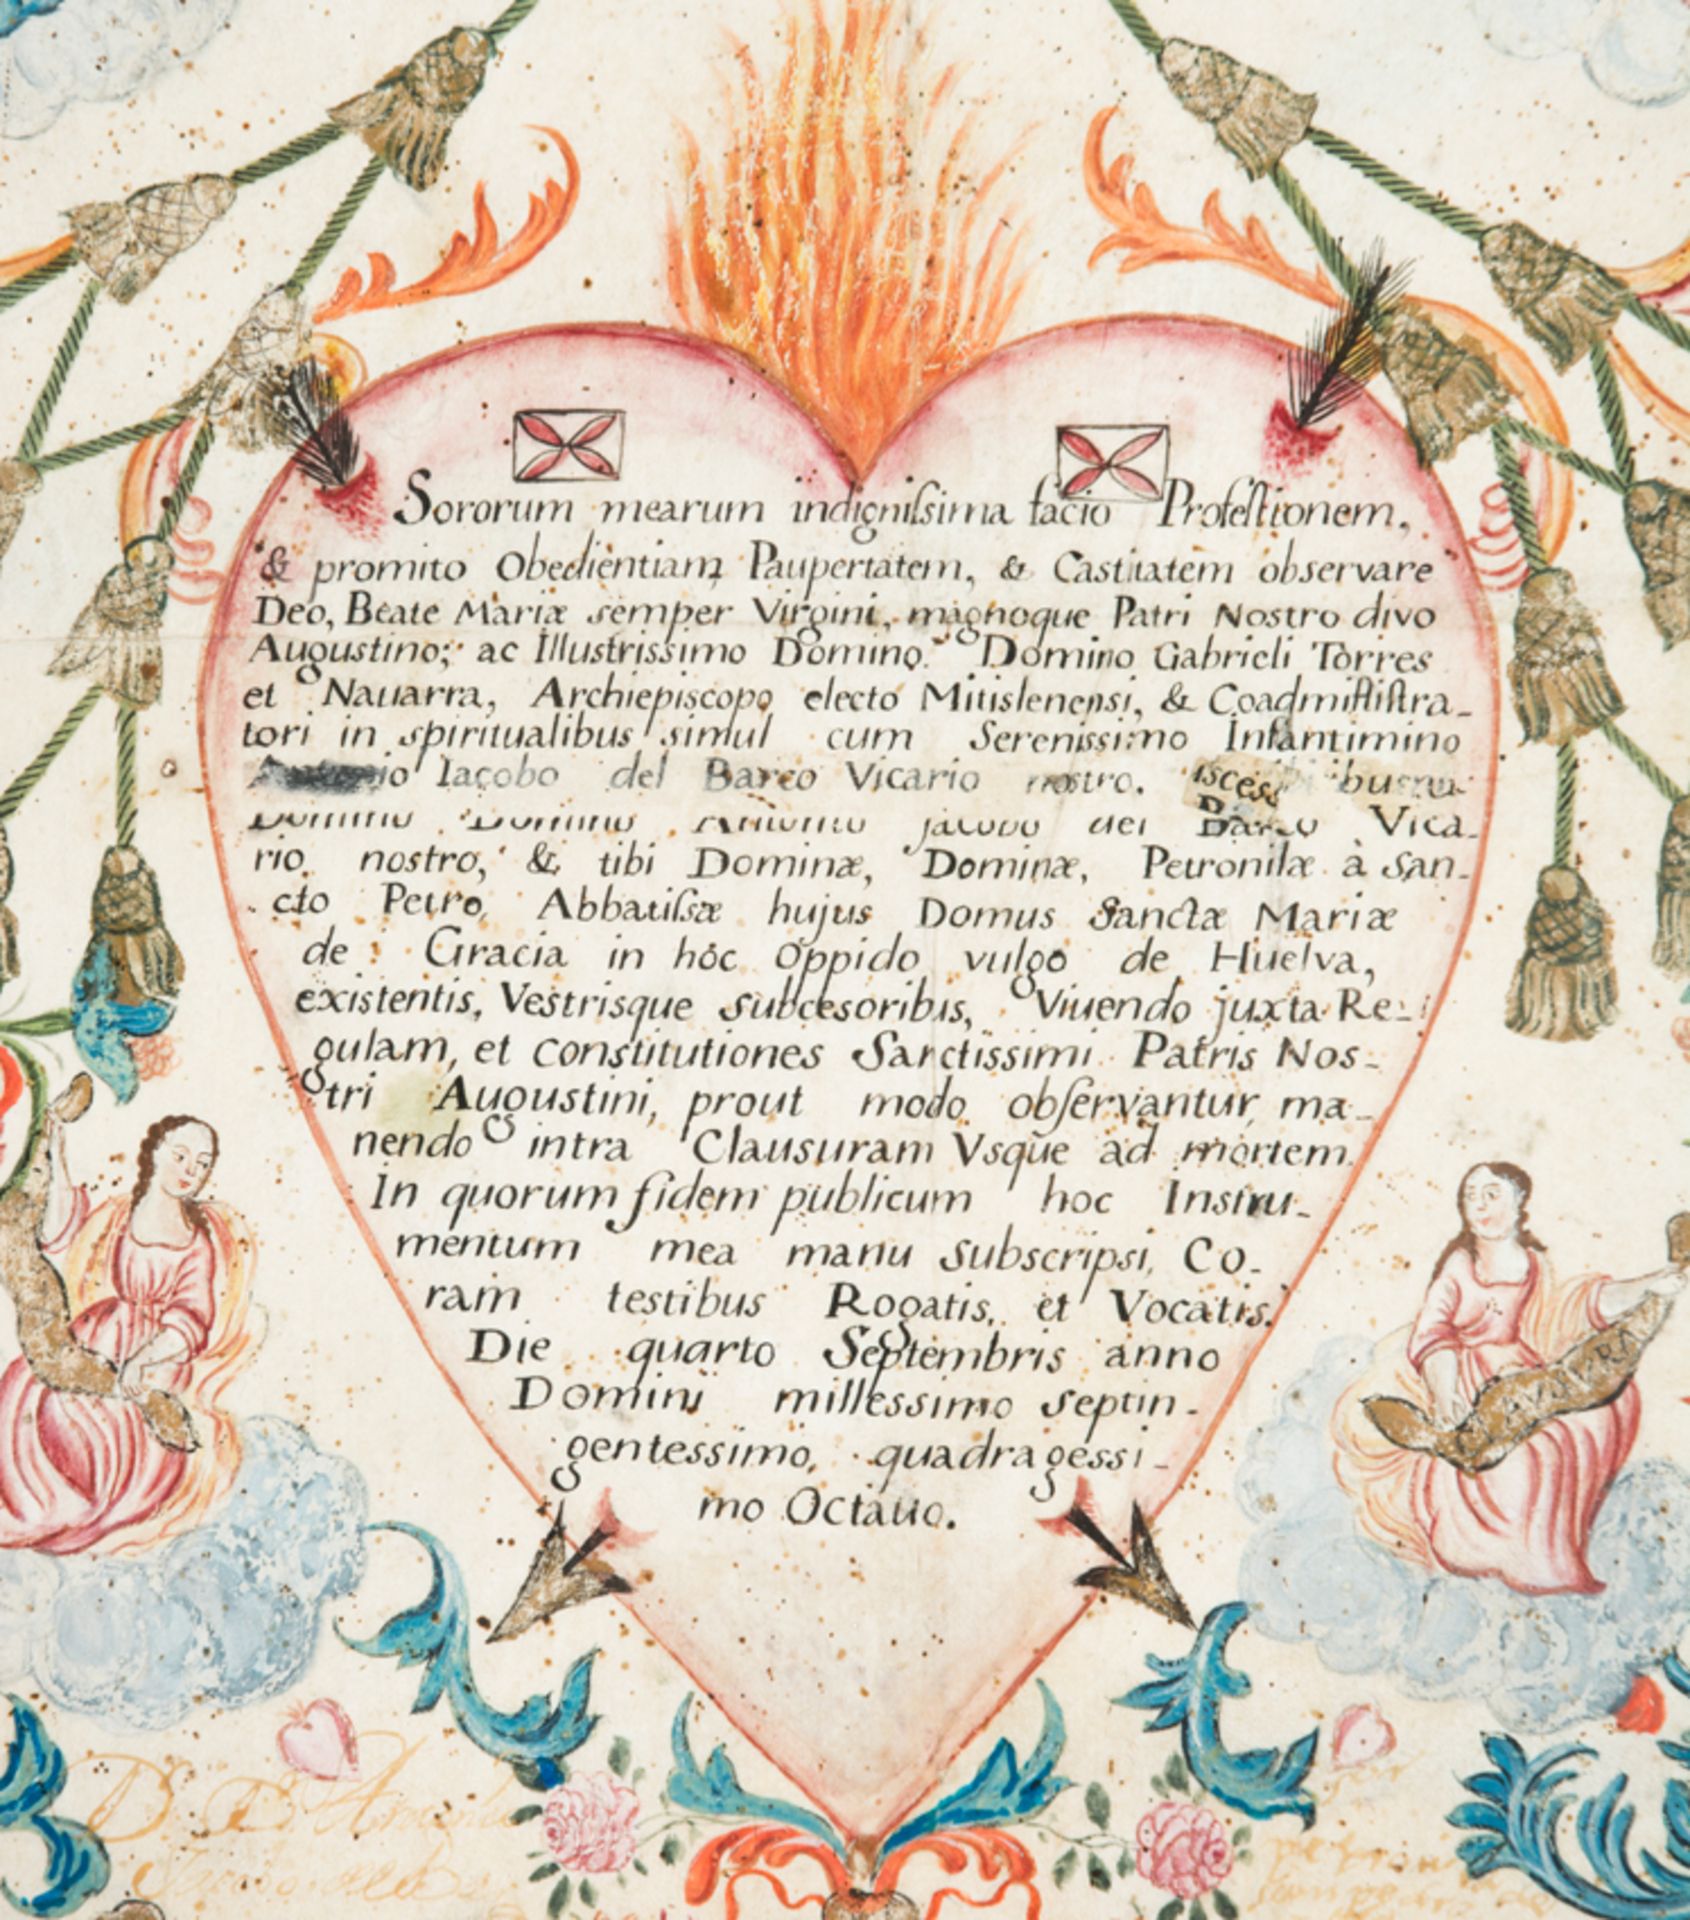 Sororum mearum indigniſsima facio Profeſsionem,
& promito Obedientiam, Paupertatem, & Castitatem observare
Deo, Beate Mariæ semper Virgini, magnoque Patri Nostro divo
Augustino; ac Illustrissimo Domino. Domino Gabrieli Torres
et Nauarra, Archiepiscopo electo Mitislenensi, & Coadmi
tori in spiritualibus simul cum Serenissimo
Iacobo del Barco Vicario nostro.
Domino Domino Antonio Jacobo del Barco Vica-
rio nostro, & tibi Dominæ, Dominæ, Petronilæ à San-
cto Petro, Abbatiſsæ hujus Domus Sanctæ Mariæ
de Gracia in hôc Oppido vulgo de Huelva,
existentis, Vestrisque subcesoribus, Viuendo juxta Re-
gulam, et constitutiones Sanctissimi Patris Nos-
tri Augustini, prout modo obſervantur, ma-
nendo intra Clausuram Vsque ad mortem.
In quorum fidem publicum hoc Instru-
mentum mea manu subscripsi, Co-
ram testibus Rogatis, et Vocatis.
Die quarto Septembris anno
Domini millessimo septin-
gentessimo, quadragessi-
mo Octauo.